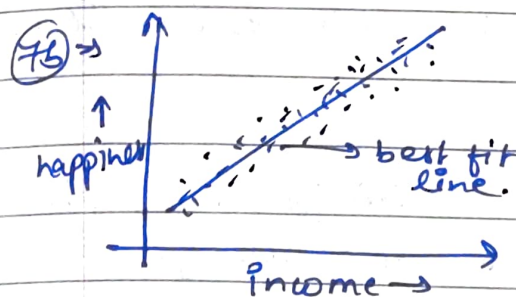 7b →
↑
happines
best fit
line.
income →